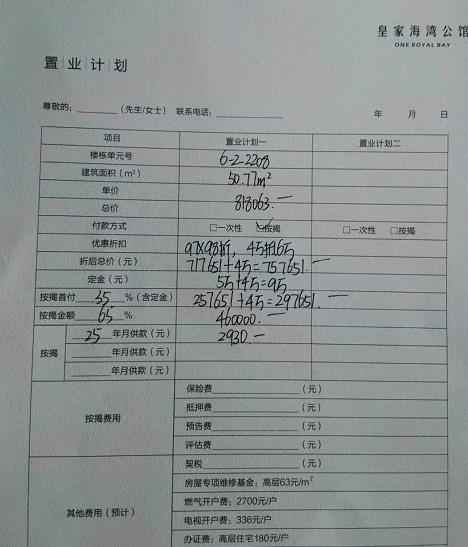 皇家海湾公馆
ONE ROYAL BAY
置业计划
尊敬的：________（先生/女士） 联系电话：________ 年 月 日
项目 置业计划一 置业计划二
楼栋单元号 6-2-2208
建筑面积（m²） 50.77m²
单价
总价 818063.一
付款方式 □一次性 ☑按揭 □一次性 □按揭
优惠折扣 97X98折，4万抵6万
折后总价（元） 717651+4万=757651.一
定金（元） 5万+4万=9万
按揭首付 35 %（含定金） 257651+4万=297651.一
按揭金额 65 % 460000.一
按揭 25 年月供款（元） 2930.一
____年月供款（元）
____年月供款（元）
按揭费用 保险费________（元）
抵押费________（元）
预告费________（元）
评估费________（元）
契税________（元）
其他费用（预计） 房屋专项维修基金：高层63元/m²
燃气开户费：2700元/户
电视开户费：336元/户
办证费：高层住宅180元/户